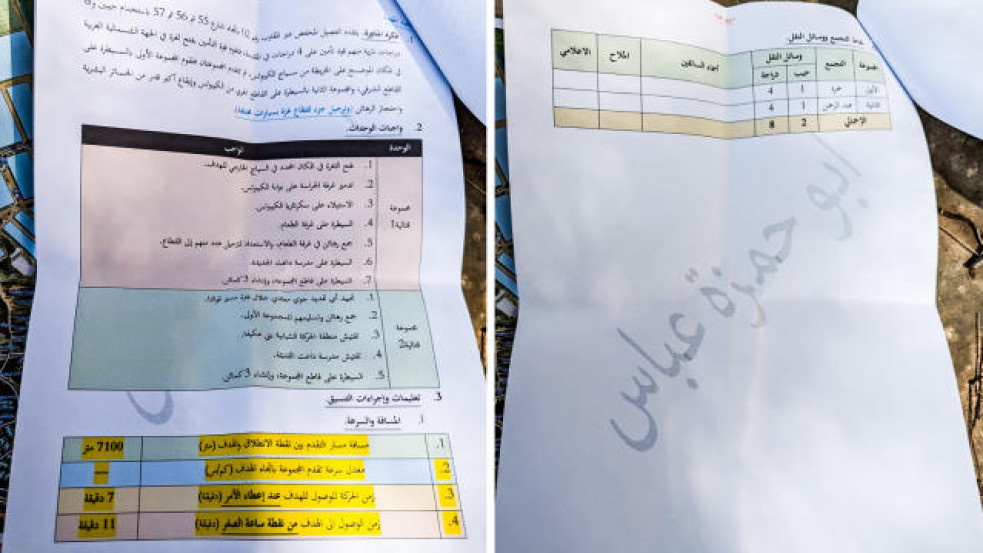 1. فكرة المناورة: يتقدم الفصيل المخفض عبر المقترب رقم 10 باتجاه الشارع 55 ثم 56 ثم 57 باستخدام جيبين و8
دراجات نارية منهم قوة تأمين على 4 دراجات في المقدمة، تقوم قوة التأمين بفتح ثغرة في الجهة الشمالية الغربية
في المكان الموضح على الخريطة من سياج الكيبوتس، ثم تتقدم المجموعتان فتقوم المجموعة الأولى بالسيطرة على
القاطع الشرقي، والمجموعة الثانية بالسيطرة على القاطع الغربي من الكيبوتس وإيقاع أكبر قدر من الخسائر البشرية
واحتجاز الرهائن (وترحيل جزء للقطاع غزة بسيارات مختلفة)
2. واجبات الوحدات.
الوحدة الواجب
مجموعة
قتالية1
1. فتح الثغرة في المكان المحدد في السياج الخارجي للهدف.
2. تدمير غرفة الحراسة على بوابة الكيبوتس.
3. الاستيلاء على سكرتاريا الكيبوتس.
4. السيطرة على غرفة الطعام.
5. جمع رهائن في غرفة الطعام، والاستعداد لترحيل عدد منهم إلى القطاع.
6. السيطرة على مدرسة داعت الجديدة.
7. السيطرة على قاطع المجموعة، وإنشاء 3 كمائن.
مجموعة
قتالية2
1. تحييد أي تهديد جوي معادي خلال فترة مسير قواتنا.
2. جمع رهائن وتسليمهم للمجموعة الأولى.
3. تفتيش منطقة الحركة الشبابية بني عكيفا.
4. تفتيش مدرسة داعت القديمة.
5. السيطرة على قاطع المجموعة، وإنشاء 3 كمائن.
3. تعليمات وإجراءات التنسيق.
أ. المسافة والسرعة.
1. مسافة مسار التقدم بين نقطة الانطلاق والهدف (متر) 7100 متر
2. معدل سرعة تقدم المجموعة باتجاه الهدف (كم/س) ---
3. زمن الحركة للوصول للهدف عند إعطاء الأمر (دقيقة) 7 دقيقة
4. زمن الوصول الى الهدف من نقطة ساعة الصفر (دقيقة) 11 دقيقة
التجمع ووسائل النقل
مجموعة التجمع وسائل النقل أسماء السائقين الملاح الاعلامي
جيب دراجة
الأولى حمزة 1 4
الثانية عبد الرحمن 1 4
الإجمالي 2 8
أبو حمزة عباس